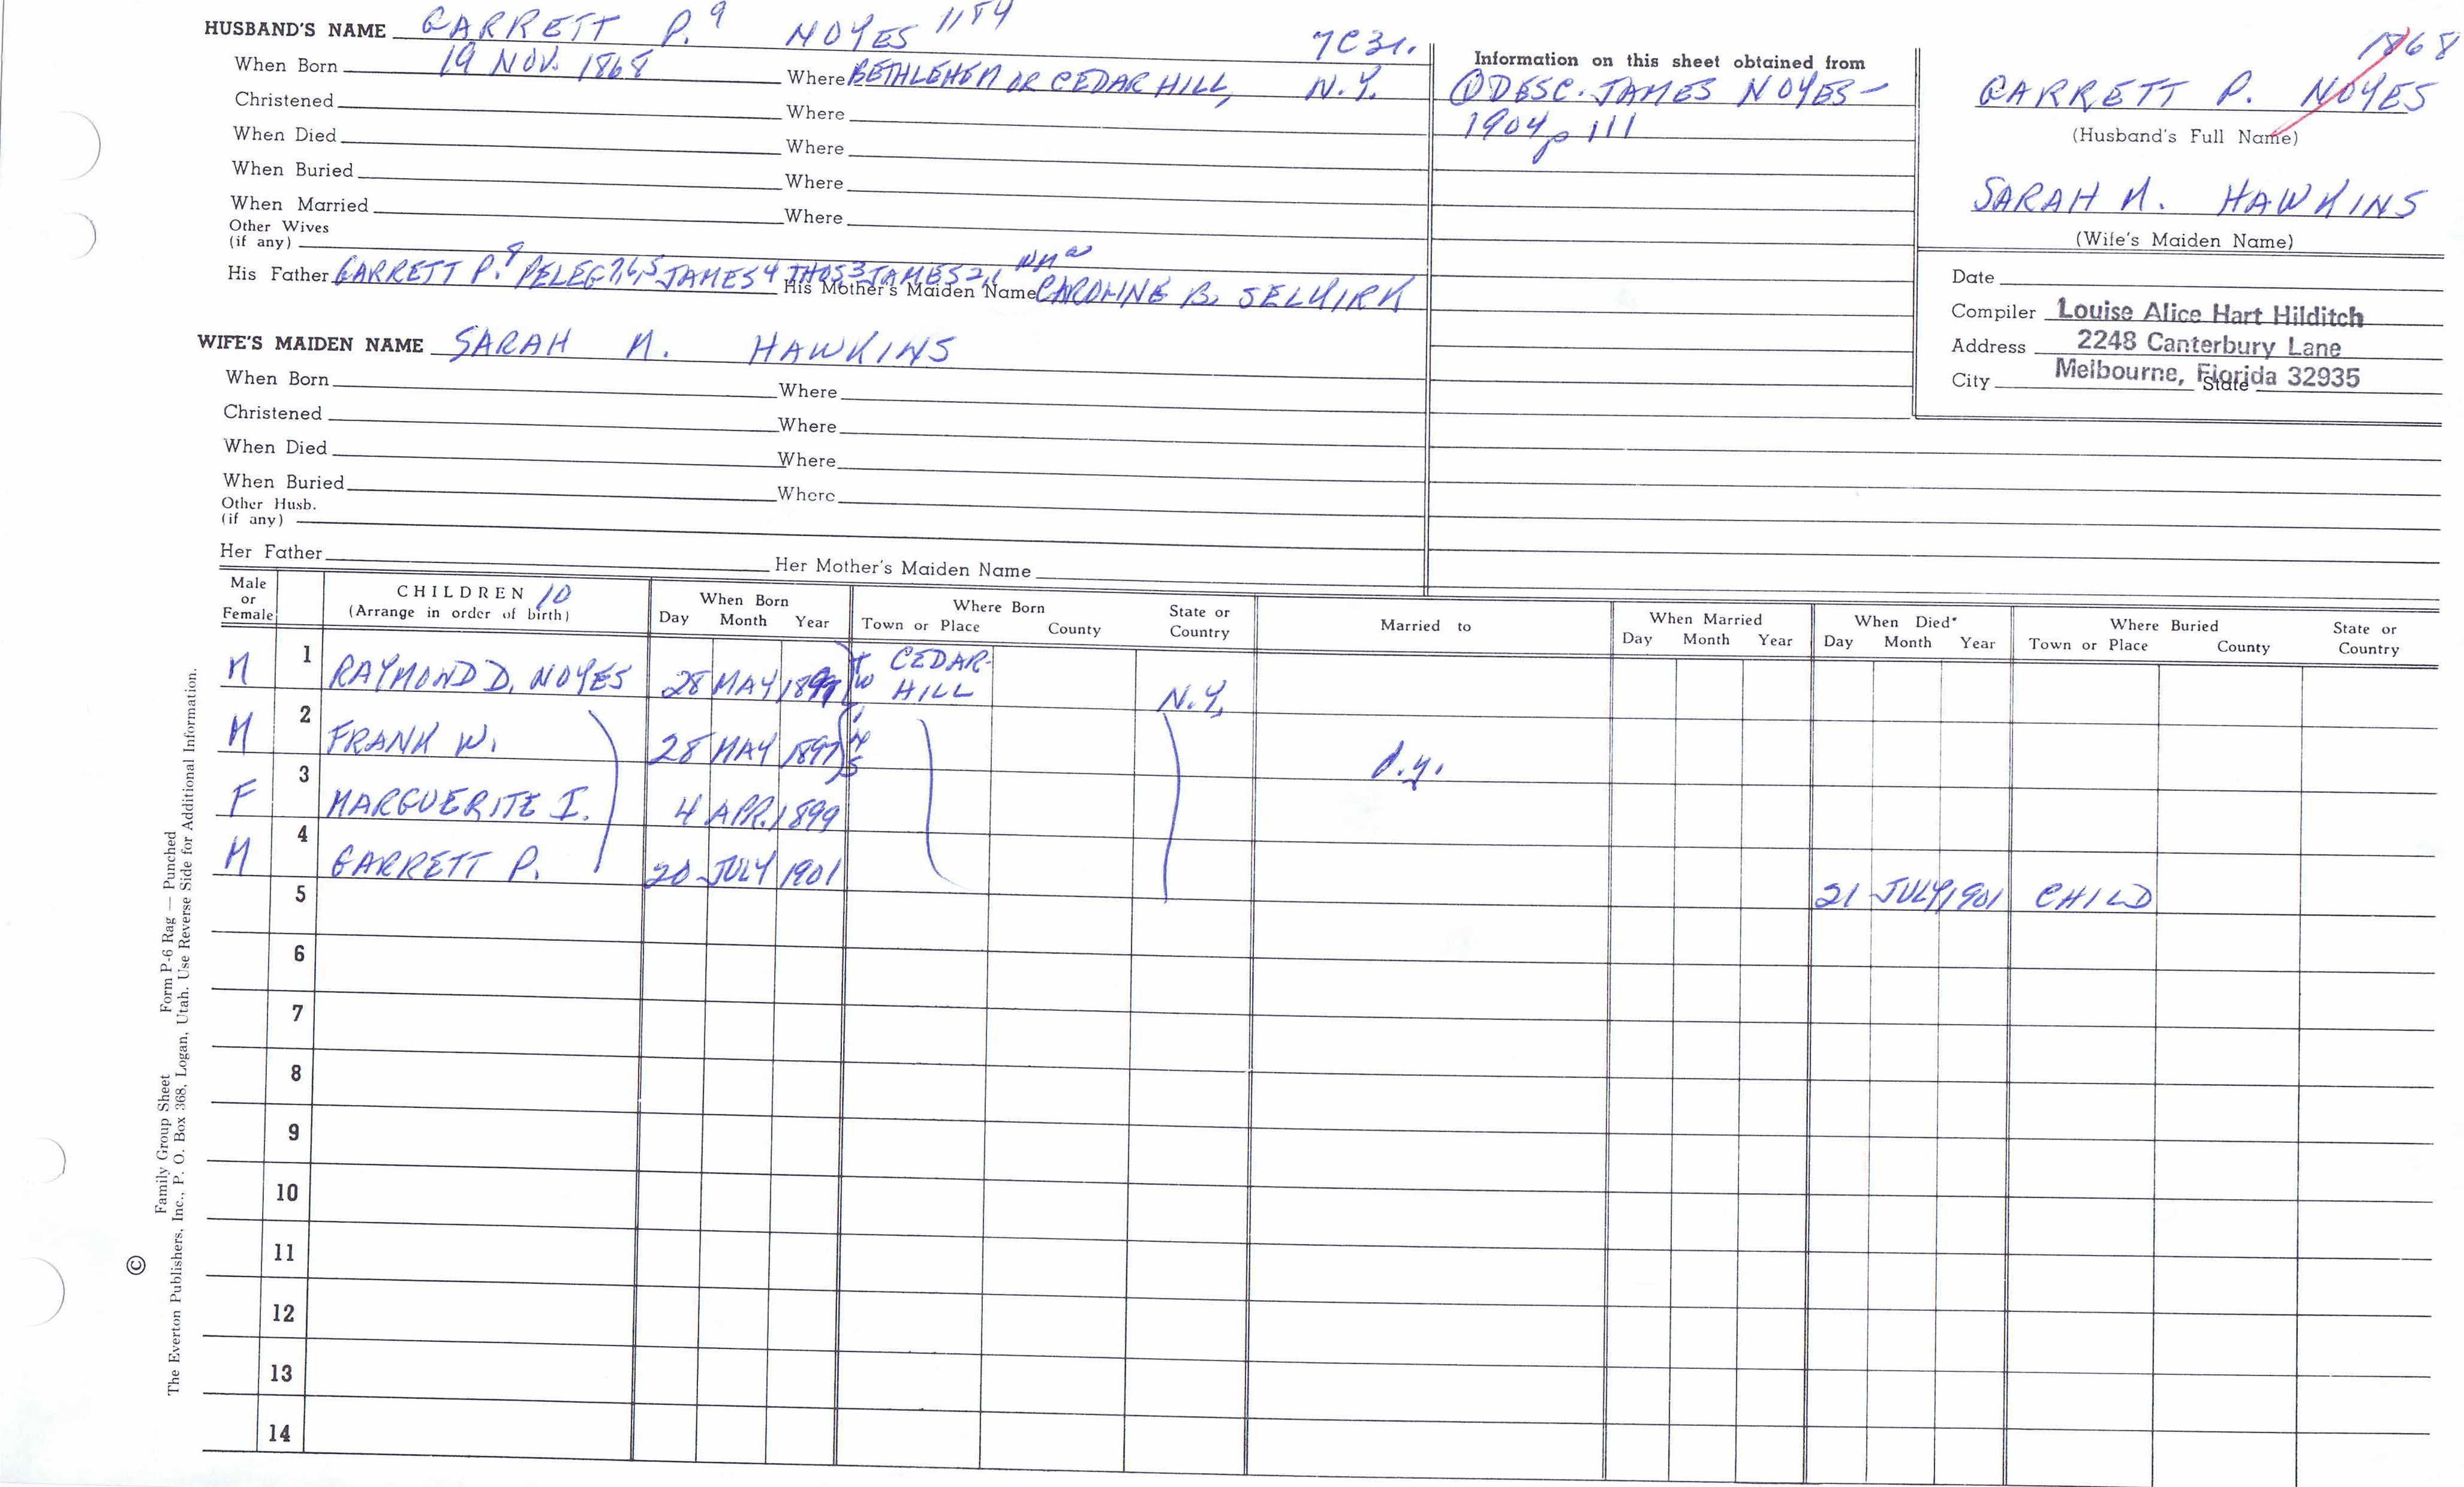 HUSBAND'S NAME GARRETT P.9 NOYES 1154 7C31.
When Born 19 NOV. 1868 Where BETHLEHEM OR CEDAR HILL, N.Y.
Christened Where
When Died Where
When Buried Where
When Married Where
Other Wives
(if any)
His Father GARRETT P.8 PELEG7,6,5 JAMES4 THOS3 JAMES2,1 Wm a His Mother's Maiden Name CAROLINE B. SELKIRK
WIFE'S MAIDEN NAME SARAH M. HAWKINS
When Born Where
Christened Where
When Died Where
When Buried Where
Other Husb.
(if any)
Her Father Her Mother's Maiden Name
Information on this sheet obtained from
① DESC. JAMES NOYES -
1904 p 111
1868
GARRETT P. NOYES
(Husband's Full Name)
SARAH M. HAWKINS
(Wife's Maiden Name)
Date
Compiler Louise Alice Hart Hilditch
Address 2248 Canterbury Lane
City Melbourne, Florida 32935 State
Male or Female CHILDREN 10 (Arrange in order of birth) When Born Day Month Year Where Born Town or Place County State or Country Married to When Married Day Month Year When Died* Day Month Year Where Buried Town or Place County State or Country
M 1 RAYMOND D. NOYES 28 MAY 1897 TWINS CEDAR-HILL N.Y.
M 2 FRANK W. 28 MAY 1897 d.y.
F 3 MARGUERITE I. 4 APR. 1899
M 4 GARRETT P. 20 JULY 1901 21 JULY 1901 CHILD
5
6
7
8
9
10
11
12
13
14
Family Group Sheet Form P-6 Rag — Punched
© The Everton Publishers, Inc., P. O. Box 368, Logan, Utah. Use Reverse Side for Additional Information.